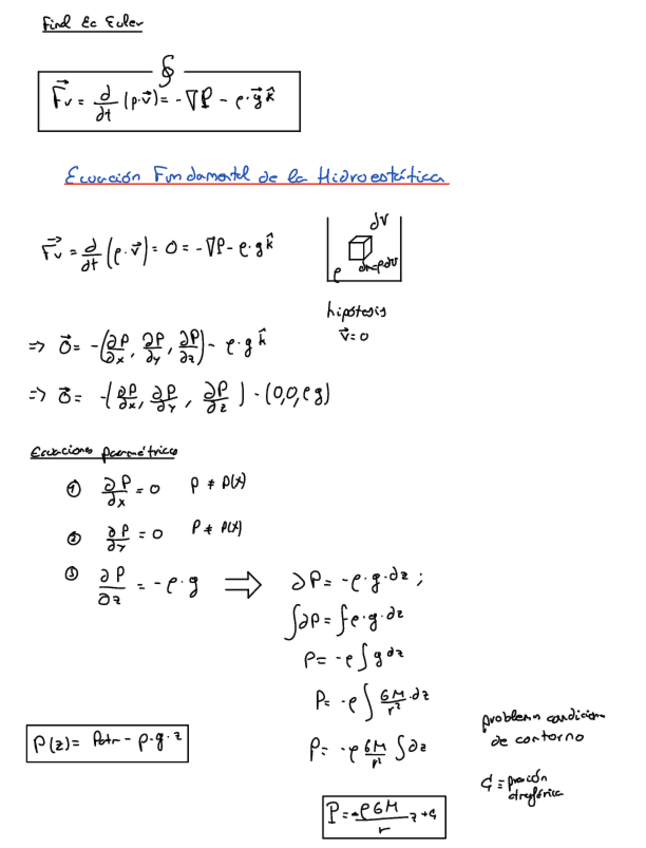 Final Ec Euler
∮
F⃗v = d/dt (ρ·v⃗) = -∇P - ρ·g⃗ k̂
Ecuación Fundamental de la Hidroestática
F⃗v = d/dt (ρ·v⃗) = 0 = -∇P - ρ·g k̂
dV
ρ
dm=ρdV
hipótesis
v⃗=0
=> 0⃗ = -(∂P/∂x, ∂P/∂y, ∂P/∂z) - ρ·g k̂
=> 0⃗ = -(∂P/∂x, ∂P/∂y, ∂P/∂z) - (0,0,ρg)
Ecuaciones paramétricas
① ∂P/∂x = 0 P ≠ P(x)
② ∂P/∂y = 0
③ ∂P/∂z = -ρ·g ⟹ ∂P = -ρ·g·dz ;
∫∂P = ∫ρ·g·dz
P = -ρ∫g dz
P = -ρ∫ GM/r² ·dz
P = -ρ GM/r² ∫∂z
P(z) = Patm - ρ·g·z
problema condición
de contorno
C₁ = presión
P = -ρGM/r z + C₁